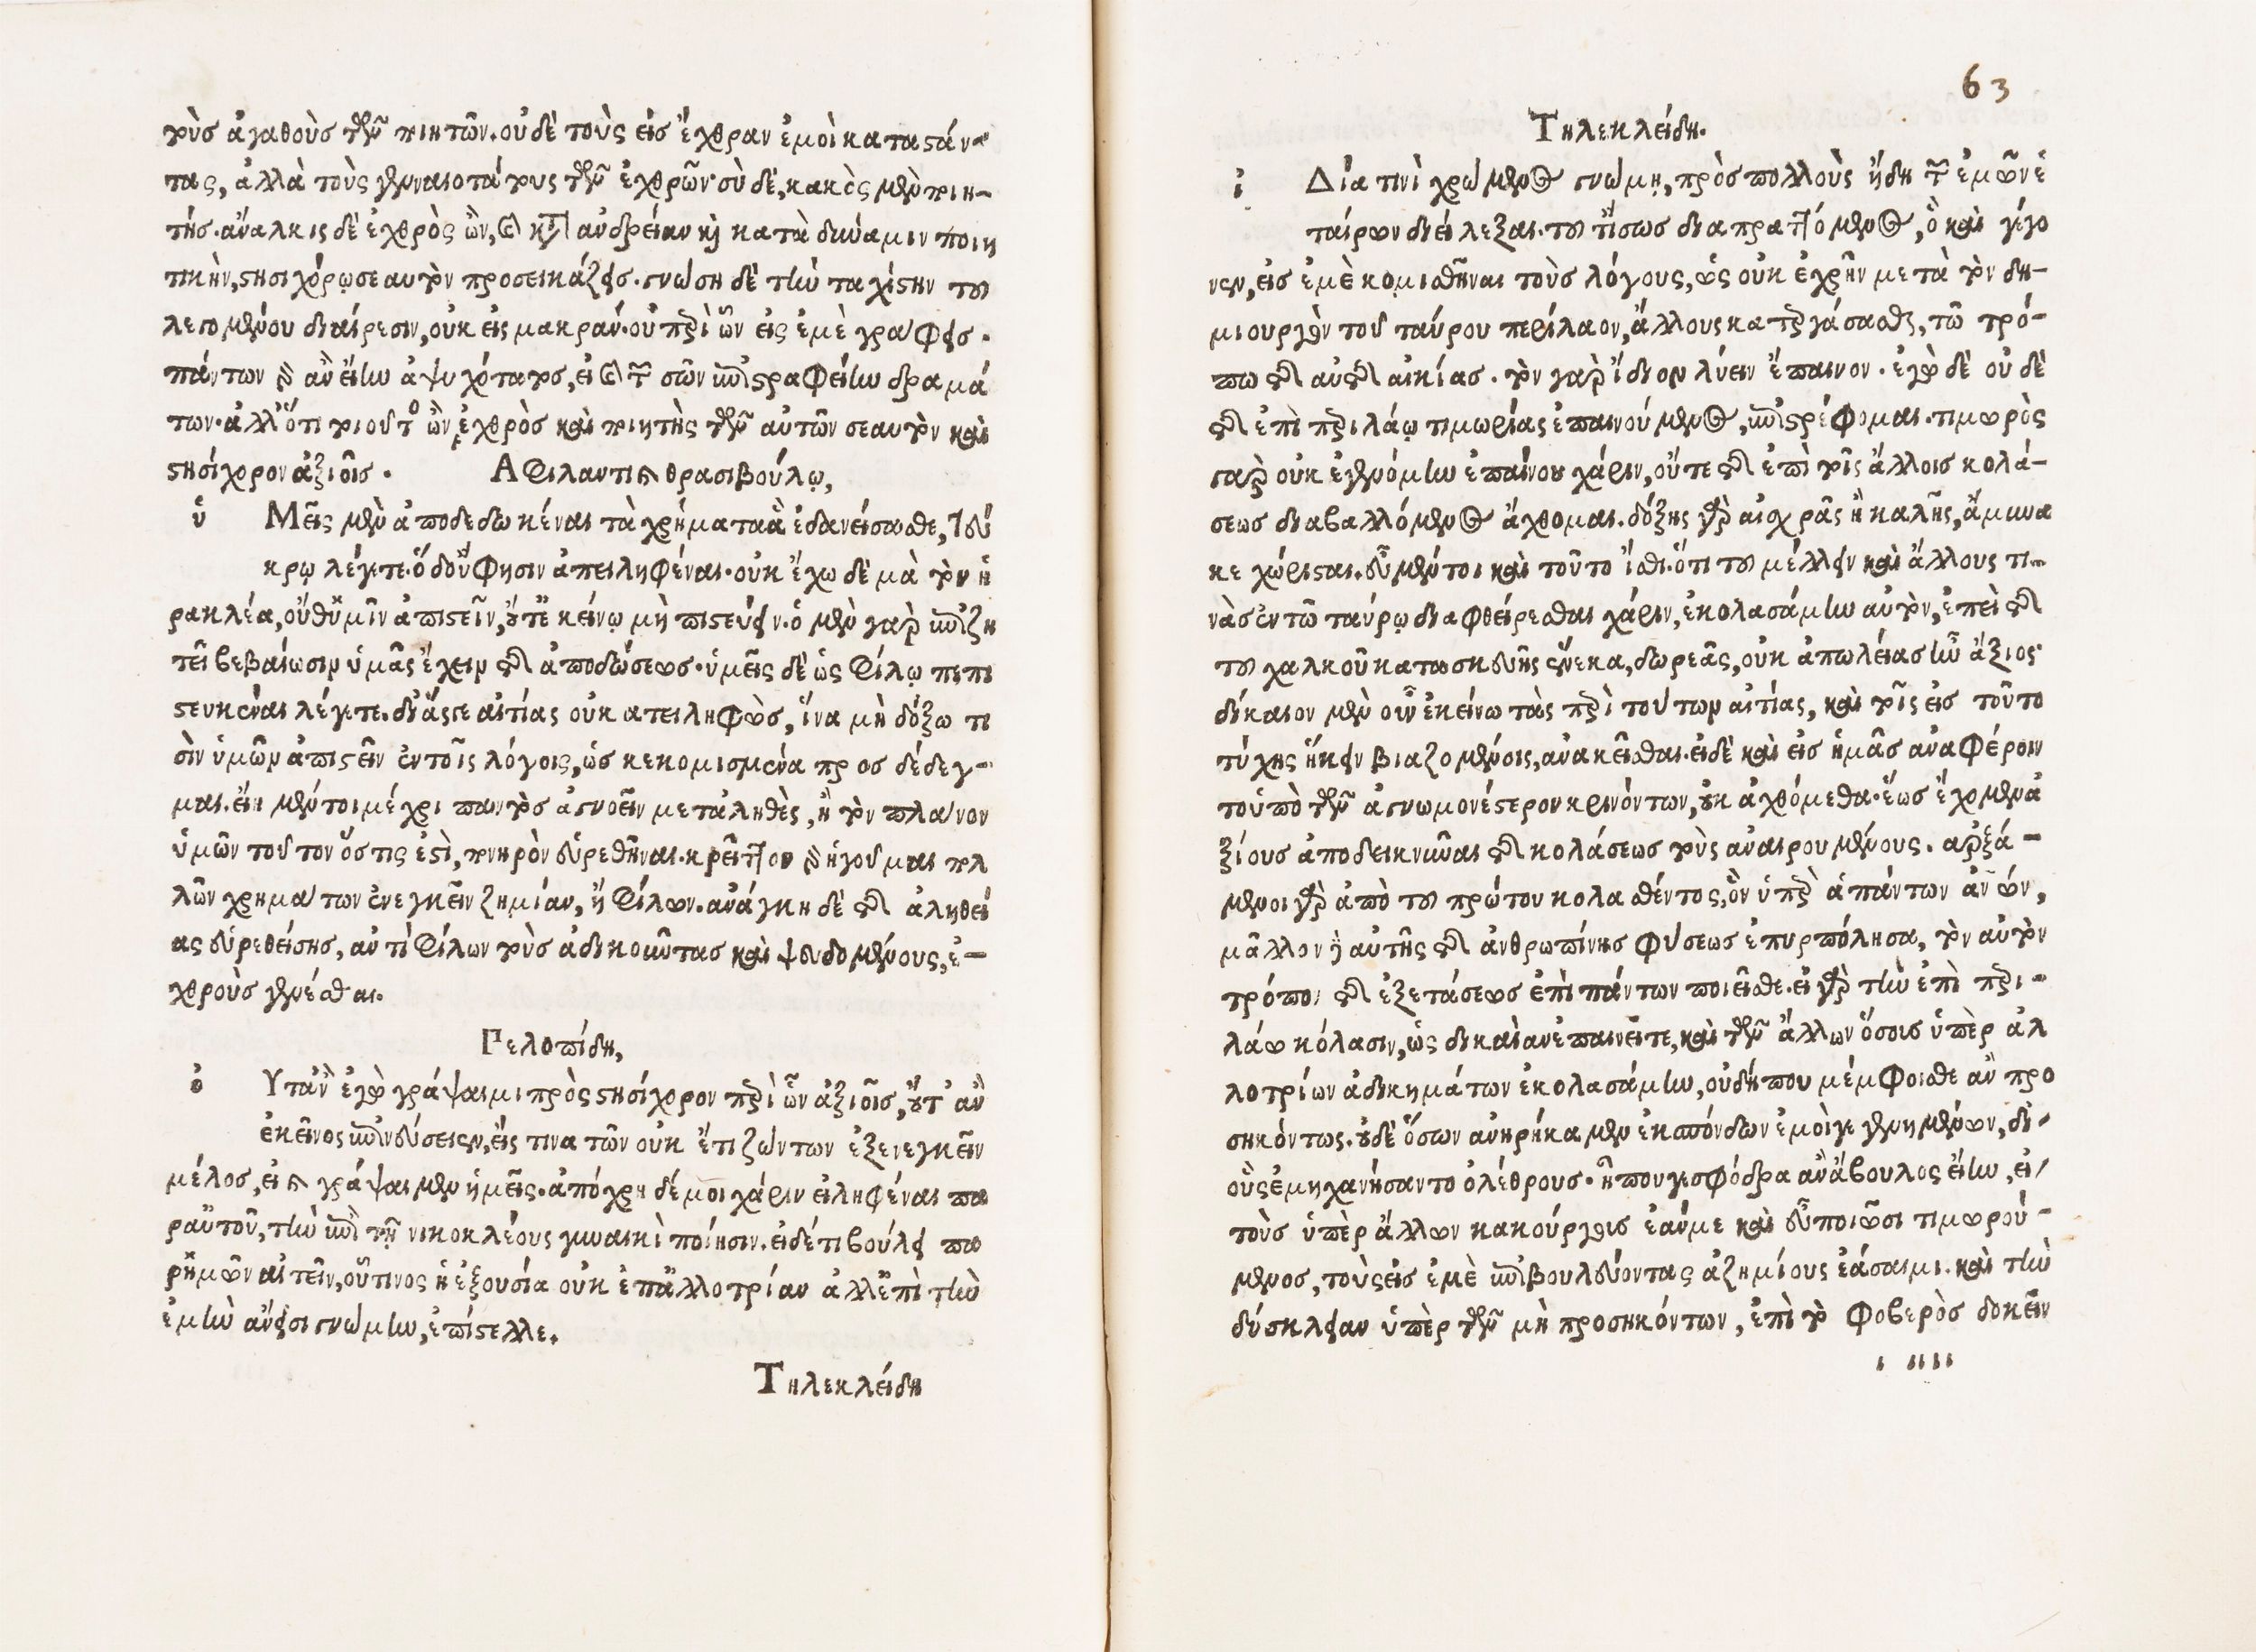 τοὺς ἀγαθοὺς τῶν ποιητῶν. οὐδὲ τοὺς εἰς ἔχθραν ἐμοὶ καταστάν-
τας, ἀλλὰ τοὺς γενναιοτάτους τῶν ἐχθρῶν· σὺ δὲ, κακὸς μὲν ποιη-
τής. ἄναλκις δὲ ἐχθρὸς ὢν, καὶ κατ' ἀνδρείαν καὶ κατὰ δύναμιν ποιη
τικὴν, στησιχόρῳ σεαυτὸν προσεικάζεις. γνώσῃ δὲ τὴν ταχίστην τοῦ
λεγομένου διαίρεσιν, οὐκ εἰς μακράν. οὐ περὶ ὧν εἰς ἐμὲ γράφεις.
πάντων γὰρ ἂν εἴην ἀψυχότατος, εἰ καὶ τῶν σῶν ἐπιστραφείην δραμά
των. ἀλλ' ὅτι τοιοῦτος ὢν ἐχθρὸς καὶ ποιητὴς τῶν αὐτῶν σεαυτὸν καὶ
στησίχορον ἀξιοῖς. Αφιλαντι θρασιβούλῳ,
ὑ Μεῖς μὲν ἀποδεδωκέναι τὰ χρήματα ἃ ἐδανείσασθε, τεύ
κρῳ λέγετε. ὁ δ' οὔ φησιν ἀπειληφέναι. οὐκ ἔχω δὲ μὰ τὸν ἡ
ρακλέα, οὔθ' ὑμῖν ἀπιστεῖν, οὔτ' ἐκείνῳ μὴ πιστεύειν. ὁ μὲν γὰρ ἐπιζη
τεῖ βεβαίωσιν ὑμᾶς ἔχειν τῆς ἀποδώσεως. ὑμεῖς δὲ ὡς φίλῳ πεπι
στευκέναι λέγετε. δι' ἅς γε αἰτίας οὐκ ἀπειληφὼς, ἵνα μὴ δόξω τι
σὶν ὑμῶν ἀπιστεῖν ἐν τοῖς λόγοις, ὡς κεκομισμένα προσδέδεγ-
μαι. εἴη μέντοι μέχρι παντὸς ἀγνοεῖν με τἀληθὲς, ἢ τὸν πλάνον
ὑμῶν τοῦτον ὅστις ἐστὶ, πονηρὸν εὑρεθῆναι. κρεῖττον γὰρ ἡγοῦμαι πολ
λῶν χρημάτων ἐνεγκεῖν ζημίαν, ἢ φίλων. ἀνάγκη δὲ τῆς ἀληθεί
ας εὑρεθείσης, ἀντὶ φίλων τοὺς ἀδικοῦντας καὶ ψευδομένους, ἐ-
χθροὺς γενέσθαι.
Γελοπίδη,
ὀ Υτ' ἂν ἐγὼ γράψαιμι πρὸς στησίχορον περὶ ὧν ἀξιοῖς, οὔτ' ἂν
ἐκεῖνος ἐπινεύσειεν, εἴς τινα τῶν οὐκ ἔτι ζώντων ἐξενεγκεῖν
μέλος, εἰ γράψαιμεν ἡμεῖς. ἀπόχρη δέ μοι χάριν εἰληφέναι πα
ρ' αὐτοῦ, τὴν ἐπὶ τῇ νικοκλέους γυναικὶ ποίησιν. εἰ δέ τι βούλει πα
ρ' ἡμῶν αἰτεῖν, οὕτινος ἡ ἐξουσία οὐκ ἐπ' ἀλλοτρίαν ἀλλ' ἐπὶ τὴν
ἐμὴν ἄνεισι γνώμην, ἐπίστελλε.
Τηλεκλείδη
63
Τηλεκλείδη.
ἰ Δία τινὶ χρώμενος γνώμῃ, πρὸς πολλοὺς ἤδη τῶν ἐμῶν ἑ
ταίρων διείλεξαι. τοῦτ' ἴσως διαπραττόμενος, ὃ καὶ γέγο
νεν, εἰς ἐμὲ κομισθῆναι τοὺς λόγους, ὡς οὐκ ἐχρῆν μετὰ τὸν δη-
μιουργὸν τοῦ ταύρου περίλαον, ἄλλους κατεργάσασθαι, τῷ τρό-
πῳ τῆς αὐτῆς αἰκίας. τὸν γὰρ ἴδιον λύειν ἔπαινον. ἐγὼ δὲ οὐδὲ
τῆς ἐπὶ περιλάῳ τιμωρίας ἐπαινούμενος, ἐπιστρέφομαι. τιμωρὸς
γὰρ οὐκ ἐγενόμην ἐπαίνου χάριν, οὔτε τῆς ἐπὶ τοῖς ἄλλοις κολά-
σεως διαβαλλόμενος ἄχθομαι. δόξης γὰρ αἰσχρᾶς ἢ καλῆς, ἄμυνα
κεχώρισται. εὖ μέντοι καὶ τοῦτο ἴσθι. ὅτι τοῦ μέλλειν καὶ ἄλλους τι-
νὰς ἐν τῷ ταύρῳ διαφθείρεσθαι χάριν, ἐκολασάμην αὐτὸν, ἐπεὶ τῆς
τοῦ χαλκοῦ κατασκευῆς ἕνεκα, δωρεᾶς, οὐκ ἀπωλείας ἦν ἄξιος·
δίκαιον μὲν οὖν ἐκείνῳ τὰς περὶ τούτων αἰτίας, καὶ τοῖς εἰς τοῦτο
τύχης ἥκειν βιαζομένοις, ἀνακεῖσθαι. εἰ δὲ καὶ εἰς ἡμᾶς ἀναφέροιν
το ὑπὸ τῶν ἀγνωμονέστερον κρινόντων, οὐκ ἀχθόμεθα. ἕως ἔχομεν ἀ
ξίους ἀποδεικνύναι τῆς κολάσεως τοὺς ἀναιρουμένους. ἀρξά-
μενοι γὰρ ἀπὸ τοῦ πρώτου κολασθέντος, ὃν ὑπὲρ ἁπάντων ἀνων,
μᾶλλον ἢ αὐτῆς τῆς ἀνθρωπίνης φύσεως ἐπυρπόλησα, τὸν αὐτὸν
τρόπον τῆς ἐξετάσεως ἐπὶ πάντων ποιεῖσθε. εἰ γὰρ τὴν ἐπὶ περι-
λάῳ κόλασιν, ὡς δικαίαν ἐπαινεῖτε, καὶ τῶν ἄλλων ὅσοις ὑπὲρ ἀλ
λοτρίων ἀδικημάτων ἐκολασάμην, οὐ δήπου μέμφοισθε ἂν προ
σηκόντως. οὐδὲ ὅσων ἀνῄρηκα μὲν ἐκσπόνδων ἐμοί γε γενημένων, δι'
οὓς ἐμηχανήσαντο ὀλέθρους. ἦ που γε σφόδρα ἂν ἄβουλος εἴην, εἰ
τοὺς ὑπὲρ ἄλλων κακούργοις ἐάν με καὶ εὖ ποιῶσι τιμωρού-
μενος, τοὺς εἰς ἐμὲ ἐπιβουλεύοντας ἀζημίους ἐάσαιμι. καὶ τὴν
δύσκλειαν ὑπὲρ τῶν μὴ προσηκόντων, ἐπὶ τὸ φοβερὸς δοκεῖν
ι ιιιι